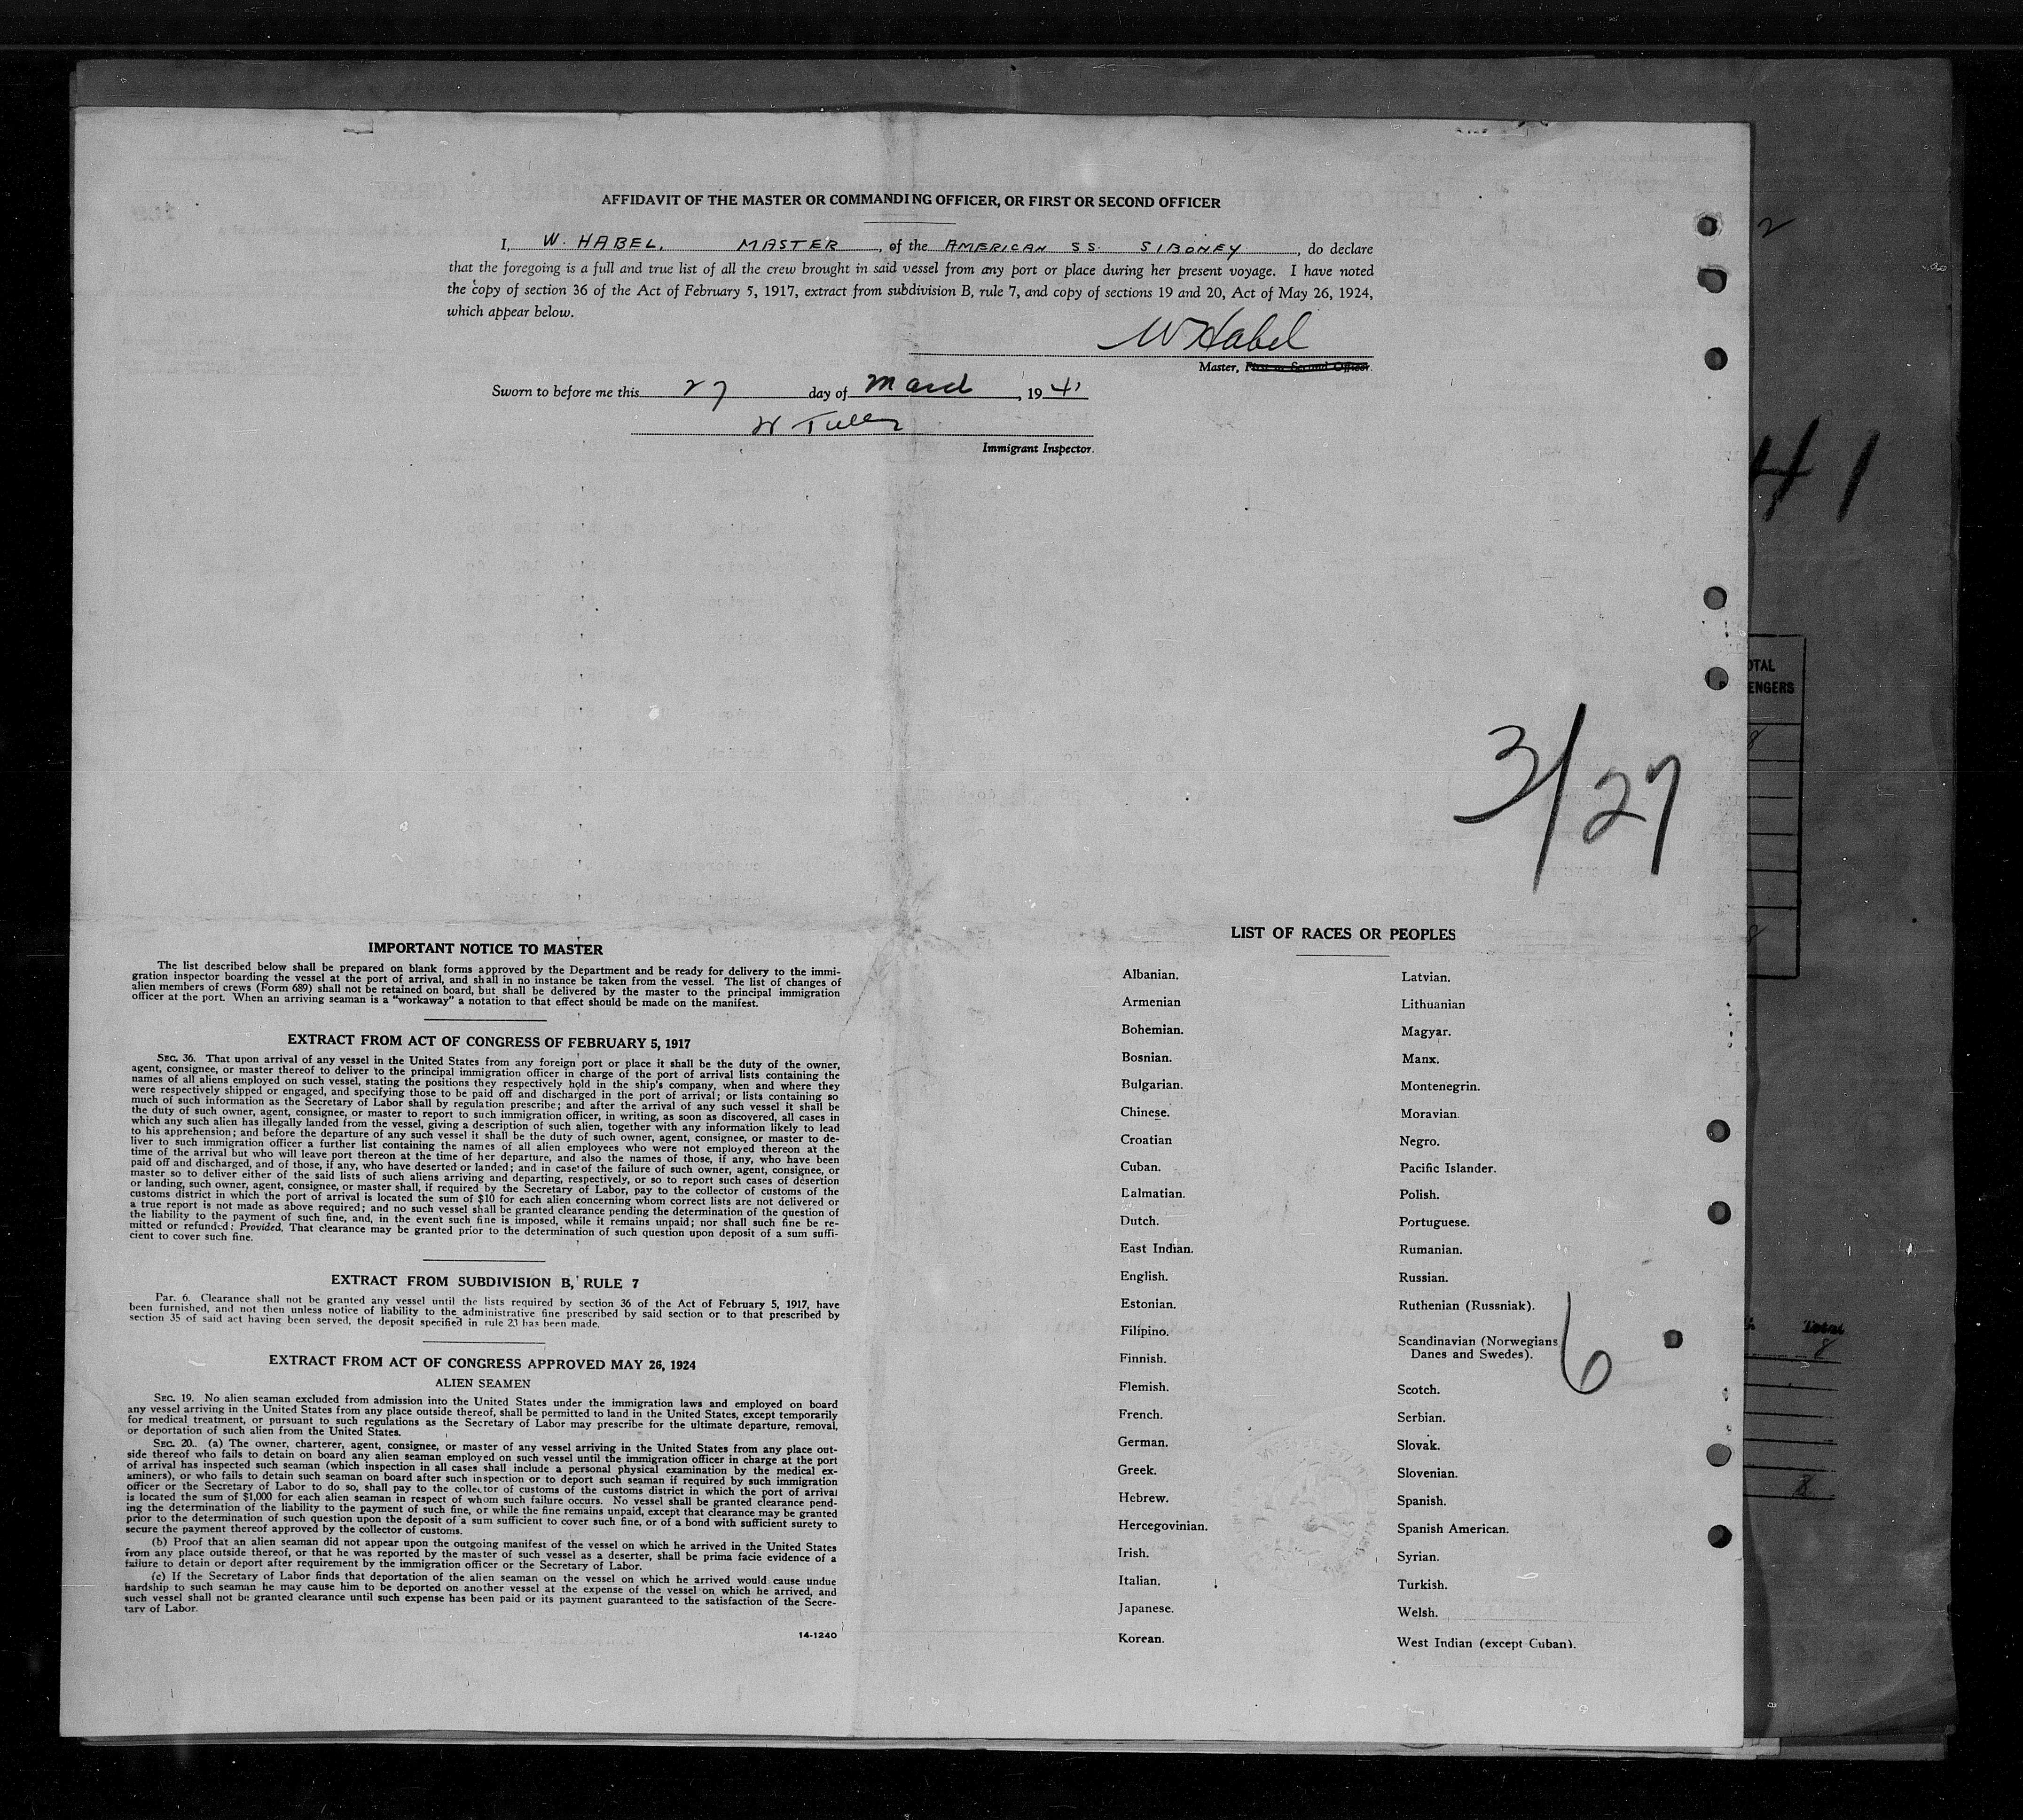 AFFIDAVIT OF THE MASTER OR COMMANDING OFFICER, OR FIRST OR SECOND OFFICER
I, W. HABEL, MASTER, of the AMERICAN SS. SIBONEY, do declare
that the foregoing is a full and true list of all the crew brought in said vessel from any port or place during her present voyage. I have noted
the copy of section 36 of the Act of February 5, 1917, extract from subdivision B, rule 7, and copy of sections 19 and 20, Act of May 26, 1924,
which appear below.
W Habel
Master, First or Second Officer.
Sworn to before me this 27 day of March, 19 41
W
Immigrant Inspector.
2
41
OTAL
ENGERS
8
3/27
8
IMPORTANT NOTICE TO MASTER
The list described below shall be prepared on blank forms approved by the Department and be ready for delivery to the immi-
gration inspector boarding the vessel at the port of arrival, and shall in no instance be taken from the vessel. The list of changes of
alien members of crews (Form 689) shall not be retained on board, but shall be delivered by the master to the principal immigration
officer at the port. When an arriving seaman is a "workaway" a notation to that effect should be made on the manifest.
EXTRACT FROM ACT OF CONGRESS OF FEBRUARY 5, 1917
SEC. 36. That upon arrival of any vessel in the United States from any foreign port or place it shall be the duty of the owner,
agent, consignee, or master thereof to deliver to the principal immigration officer in charge of the port of arrival lists containing the
names of all aliens employed on such vessel, stating the positions they respectively hold in the ship's company, when and where they
were respectively shipped or engaged, and specifying those to be paid off and discharged in the port of arrival; or lists containing so
much of such information as the Secretary of Labor shall by regulation prescribe; and after the arrival of any such vessel it shall be
the duty of such owner, agent, consignee, or master to report to such immigration officer, in writing, as soon as discovered, all cases in
which any such alien has illegally landed from the vessel, giving a description of such alien, together with any information likely to lead
to his apprehension; and before the departure of any such vessel it shall be the duty of such owner, agent, consignee, or master to de-
liver to such immigration officer a further list containing the names of all alien employees who were not employed thereon at the
time of the arrival but who will leave port thereon at the time of her departure, and also the names of those, if any, who have been
paid off and discharged, and of those, if any, who have deserted or landed; and in case of the failure of such owner, agent, consignee, or
master so to deliver either of the said lists of such aliens arriving and departing, respectively, or so to report such cases of desertion
or landing, such owner, agent, consignee, or master shall, if required by the Secretary of Labor, pay to the collector of customs of the
customs district in which the port of arrival is located the sum of $10 for each alien concerning whom correct lists are not delivered or
a true report is not made as above required; and no such vessel shall be granted clearance pending the determination of the question of
the liability to the payment of such fine, and, in the event such fine is imposed, while it remains unpaid; nor shall such fine be re-
mitted or refunded: Provided, That clearance may be granted prior to the determination of such question upon deposit of a sum suffi-
cient to cover such fine.
EXTRACT FROM SUBDIVISION B, RULE 7
Par. 6. Clearance shall not be granted any vessel until the lists required by section 36 of the Act of February 5, 1917, have
been furnished, and not then unless notice of liability to the administrative fine prescribed by said section or to that prescribed by
section 35 of said act having been served, the deposit specified in rule 23 has been made.
EXTRACT FROM ACT OF CONGRESS APPROVED MAY 26, 1924
ALIEN SEAMEN
SEC. 19. No alien seaman excluded from admission into the United States under the immigration laws and employed on board
any vessel arriving in the United States from any place outside thereof, shall be permitted to land in the United States, except temporarily
for medical treatment, or pursuant to such regulations as the Secretary of Labor may prescribe for the ultimate departure, removal,
or deportation of such alien from the United States.
SEC. 20. (a) The owner, charterer, agent, consignee, or master of any vessel arriving in the United States from any place out-
side thereof who fails to detain on board any alien seaman employed on such vessel until the immigration officer in charge at the port
of arrival has inspected such seaman (which inspection in all cases shall include a personal physical examination by the medical ex-
aminers), or who fails to detain such seaman on board after such inspection or to deport such seaman if required by such immigration
officer or the Secretary of Labor to do so, shall pay to the collector of customs of the customs district in which the port of arrival
is located the sum of $1,000 for each alien seaman in respect of whom such failure occurs. No vessel shall be granted clearance pend-
ing the determination of the liability to the payment of such fine, or while the fine remains unpaid, except that clearance may be granted
prior to the determination of such question upon the deposit of a sum sufficient to cover such fine, or of a bond with sufficient surety to
secure the payment thereof approved by the collector of customs.
(b) Proof that an alien seaman did not appear upon the outgoing manifest of the vessel on which he arrived in the United States
from any place outside thereof, or that he was reported by the master of such vessel as a deserter, shall be prima facie evidence of a
failure to detain or deport after requirement by the immigration officer or the Secretary of Labor.
(c) If the Secretary of Labor finds that deportation of the alien seaman on the vessel on which he arrived would cause undue
hardship to such seaman he may cause him to be deported on another vessel at the expense of the vessel on which he arrived, and
such vessel shall not be granted clearance until such expense has been paid or its payment guaranteed to the satisfaction of the Secre-
tary of Labor.
14-1240
LIST OF RACES OR PEOPLES
Albanian.
Armenian
Bohemian.
Bosnian.
Bulgarian.
Chinese.
Croatian
Cuban.
Dalmatian.
Dutch.
East Indian.
English.
Estonian.
Filipino.
Finnish.
Flemish.
French.
German.
Greek.
Hebrew.
Hercegovinian.
Irish.
Italian.
Japanese.
Korean.
Latvian.
Lithuanian
Magyar.
Manx.
Montenegrin.
Moravian.
Negro.
Pacific Islander.
Polish.
Portuguese.
Rumanian.
Russian.
Ruthenian (Russniak).
Scandinavian (Norwegians
Danes and Swedes).
Scotch.
Serbian.
Slovak.
Slovenian.
Spanish.
Spanish American.
Syrian.
Turkish.
Welsh.
West Indian (except Cuban).
6
Total
8
8